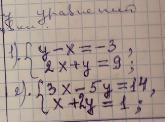 уравнений
1). { y - x = -3 ,
2x + y = 9 ;
2). { 3x - 5y = 14 ,
x + 2y = 1 ;